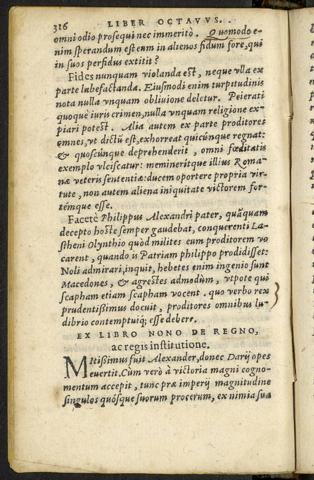 316 LIBER OCTAVVS.
omni odio prosequi nec immeritò. Quomodo e-
nim sperandum est eum in alienos fidum fore, qui
in suos perfidus extitit?
Fides nunquam violanda est, neque vlla ex
parte labefactanda. Eiusmodi enim turpitudinis
nota nulla vnquam obliuione deletur. Peierati
quoque iuris crimen, nulla vnquam religione ex-
piari potest. Alia autem ex parte proditores
omnes, vt dictũ est, exhorreat quicũnque regnat:
& quoscũnque deprehenderit, omni fœditatis
exemplo vlciscatur: memineritque illius Roma-
næ veteris sententiæ: ducem oportere propria vir-
tute, non autem aliena iniquitate victorem for-
témque esse.
Facetè Philippus Alexandri pater, quãquam
decepto hoste semper gaudebat, conquerenti La-
stheni Olynthio quòd milites eum proditorem vo
carent, quando is Patriam philippo prodidisset:
Noli admirari, inquit, hebetes enim ingenio sunt
Macedones, & agrestes admodùm, vtpote qui
scapham etiam scapham vocent. quo verbo rex
prudentissimus docuit, proditores omnibus lu-
dibrio contemptuíq; esse debere.
EX LIBRO NONO DE REGNO,
ac regis institutione.
MItissimus fuit Alexander, donec Darij opes
euertit. Cùm verò à victoria magni cogno-
mentum accepit, tunc præ imperij magnitudine
singulos quósque suorum procerum, ex nimia sua